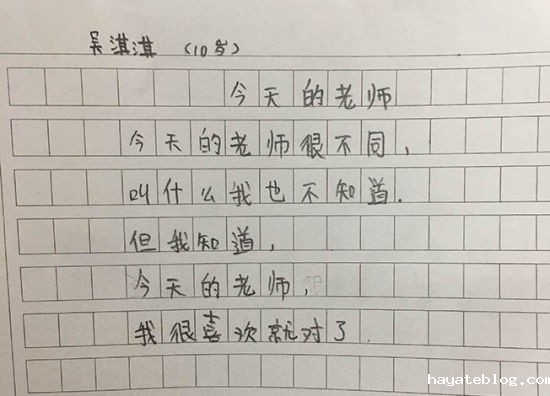 吴淇淇（10岁）
今天的老师
今天的老师很不同，
叫什么我也不知道.
但我知道，
今天的老师，
我很喜欢就对了.
hayateblog.com